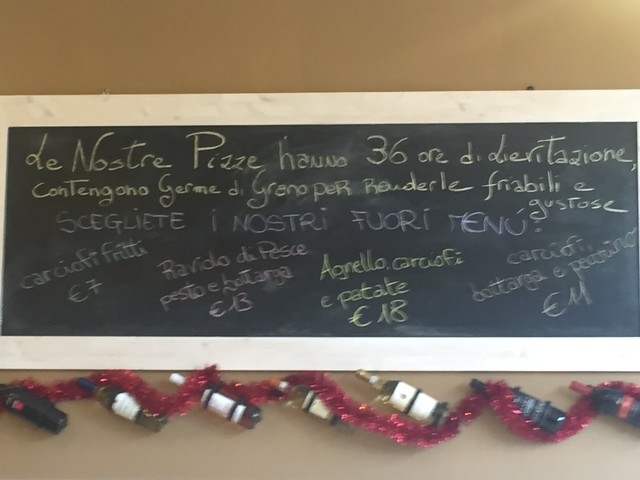 Le Nostre Pizze hanno 36 ore di Lievitazione,
contengono Germe di Grano per Renderle friabili e
gustose
SCEGLIETE I NOSTRI FUORI MENÚ:
carciofi fritti
€7
Raviolo di Pesce
pesto e bottarga
€13
Agnello, carciofi
e patate
€18
carciofi,
bottarga e pecorino
€11